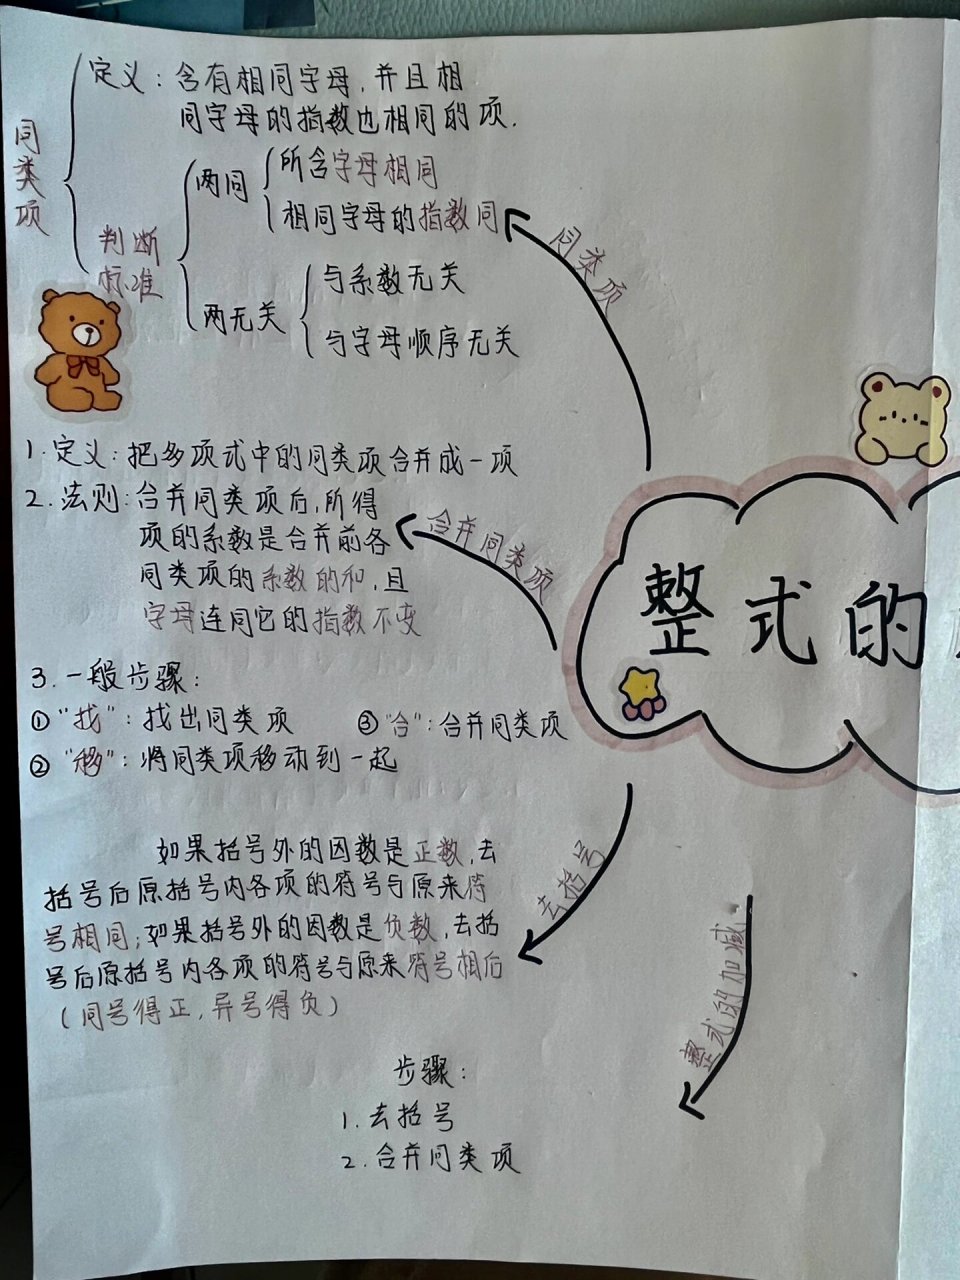 同类项
定义：含有相同字母，并且相
同字母的指数也相同的项.
判断
标准
两同
所含字母相同
相同字母的指数同
两无关
与系数无关
与字母顺序无关
同类项
1.定义：把多项式中的同类项合并成一项
2.法则：合并同类项后，所得
项的系数是合并前各
同类项的系数的和，且
字母连同它的指数不变
合并同类项
3.一般步骤：
①"找"：找出同类项 ③"合"：合并同类项
②"移"：将同类项移动到一起
整式的
如果括号外的因数是正数，去
括号后原括号内各项的符号与原来符
号相同；如果括号外的因数是负数，去括
号后原括号内各项的符号与原来符号相后
（同号得正，异号得负）
去括号
整式的加减
步骤：
1.去括号
2.合并同类项